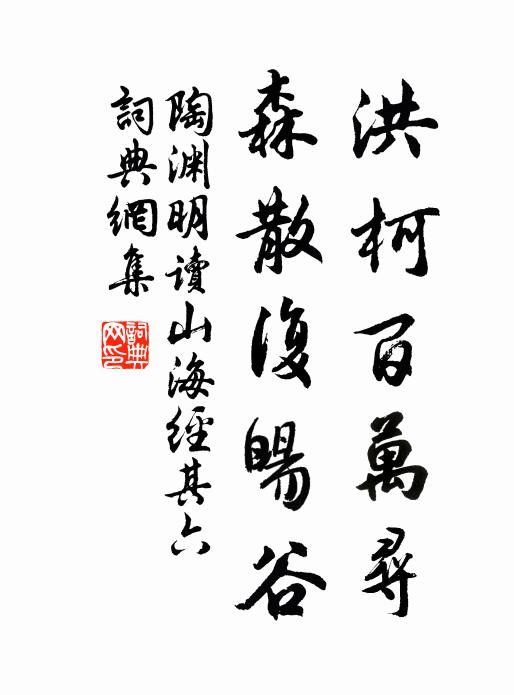 洪柯百萬尋
森散復暘谷
陶渊明讀山海經其六
詞典網集
詞典网印